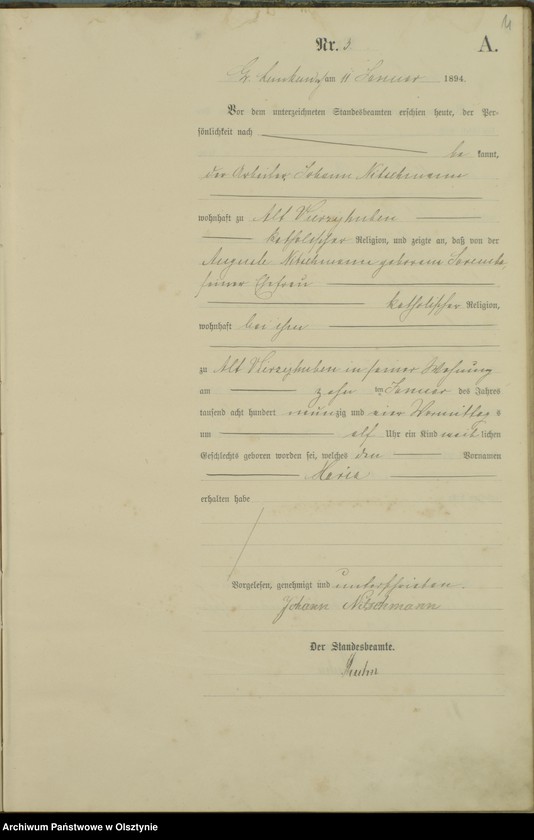 4
Nr. 3. A.
am 11 Januar 1894.
Vor dem unterzeichneten Standesbeamten erschien heute, der Per-
sönlichkeit nach
be kannt,
der Arbeiter Johann Nitschmann
wohnhaft zu Alt Vierzighuben
katholischer Religion, und zeigte an, daß von der
Auguste Nitschmann geborene
seiner Ehefrau
katholischer Religion,
wohnhaft bei ihm
zu Alt Vierzighuben in seiner Wohnung
am zehn ten Januar des Jahres
tausend acht hundert neunzig und vier Vormittags
um elf Uhr ein Kind weiblichen
Geschlechts geboren worden sei, welches den Vornamen
Maria
erhalten habe
Vorgelesen, genehmigt und unterschrieben.
Johann Nitschmann
Der Standesbeamte.
Archiwum Państwowe w Olsztynie